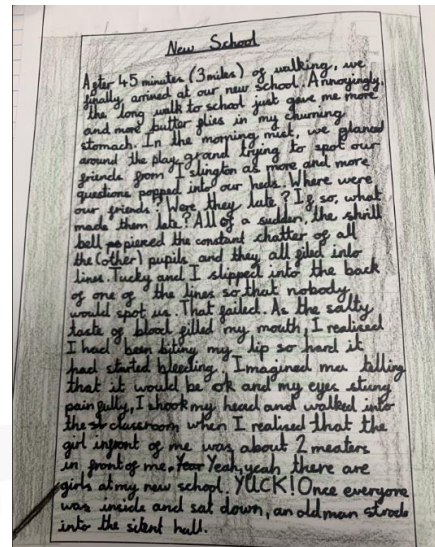 New School
After 45 minutes (3 miles) of walking, we
finally arrived at our new school. Annoyingly,
the long walk to school just gave me more
and more butter flies in my churning
stomach. In the morning mist, we glanced
around the play grand trying to spot our
friends from Islington as more and more
questions popped into our heds. Where were
our friends? Were they late? If so, what
made them late? All of a sudden, the shrill
bell pierced the constant chatter of all
the (other) pupils and they all filed into
lines. Tucky and I slipped into the back
of one of the lines so that nobody
would spot us. That failed. As the salty
taste of blood filled my mouth, I realised
I had been biting my lip so hard it
had started bleeding. I imagined telling
that it would be ok and my eyes stung
painfully, I shook my head and walked into
the classroom when I realised that the
girl infront of me was about 2 meaters
in front of me. Yeah, yeah there are
girls at my new school. YUCK! Once everyone
was inside and sat down, an old man strode
into the silent hall.